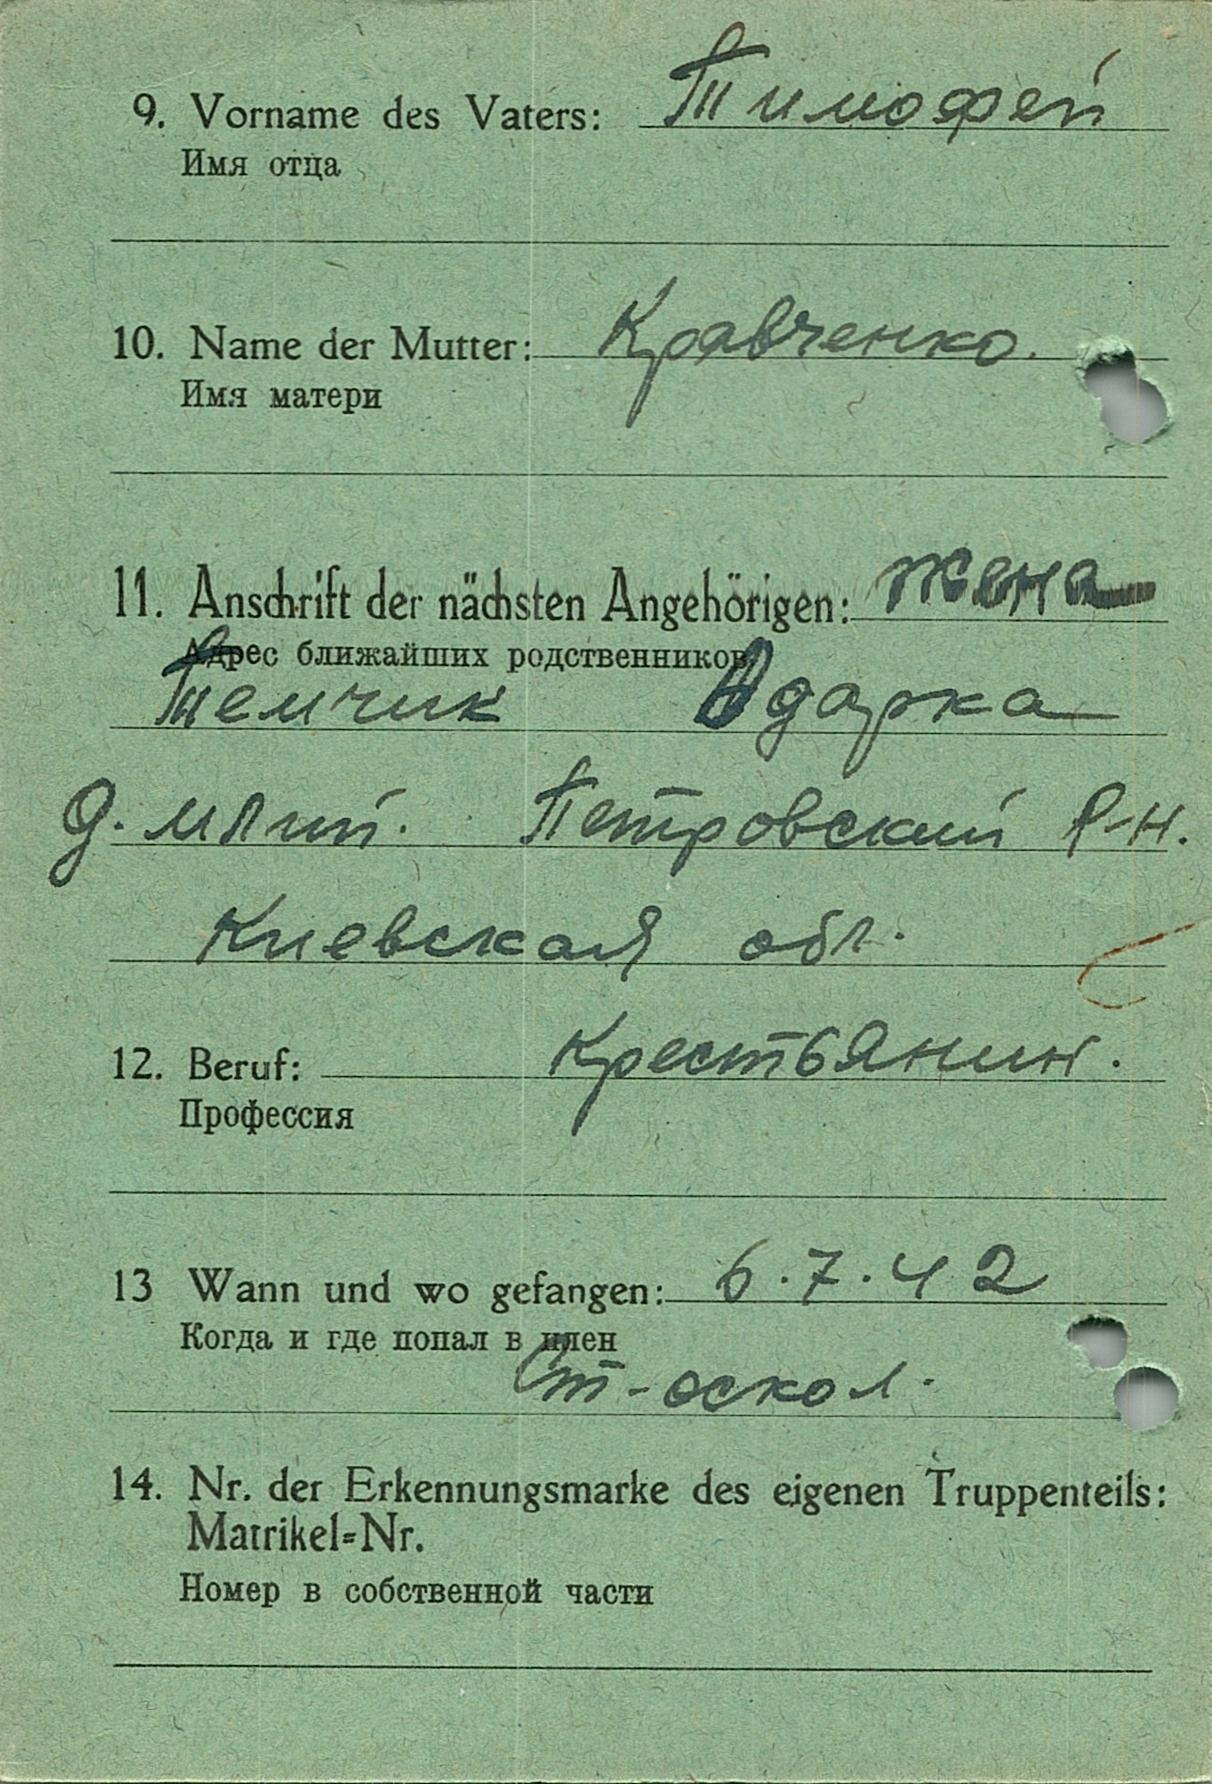 9. Vorname des Vaters: Тимофей
Имя отца
10. Name der Mutter: Кравченко.
Имя матери
11. Anschrift der nächsten Angehörigen: жена
Адрес ближайших родственников
Темчик Одарка
д. млий. Петровский р-н.
Киевская обл.
12. Beruf: Крестьянин.
Профессия
13 Wann und wo gefangen: 6.7.42
Когда и где попал в плен
Ст-оскол.
14. Nr. der Erkennungsmarke des eigenen Truppenteils:
Matrikel=Nr.
Номер в собственной части